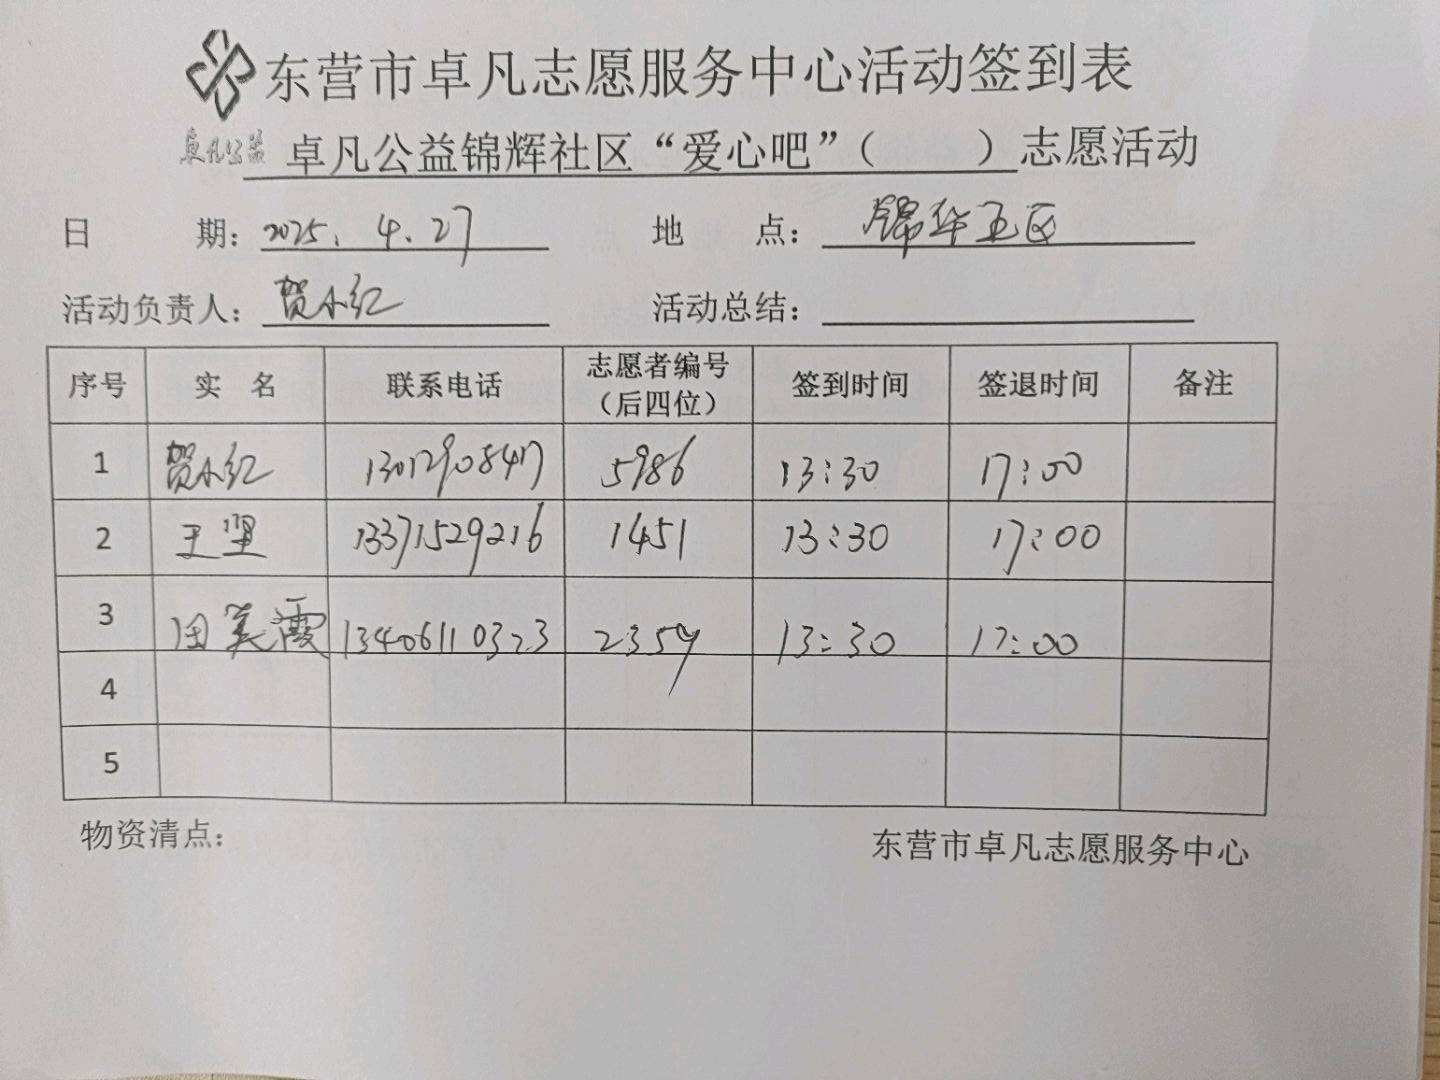 东营市卓凡志愿服务中心活动签到表
卓凡公益 卓凡公益锦辉社区“爱心吧”（ ）志愿活动
日 期：2025.4.27 地 点：锦华五区
活动负责人：贺小红 活动总结：
序号 实 名 联系电话 志愿者编号（后四位） 签到时间 签退时间 备注
1 贺小红 13012908417 5986 13:30 17:00
2 王坚 13371529216 1451 13:30 17:00
3 田美霞 13406110323 2359 13:30 17:00
4
5
物资清点： 东营市卓凡志愿服务中心